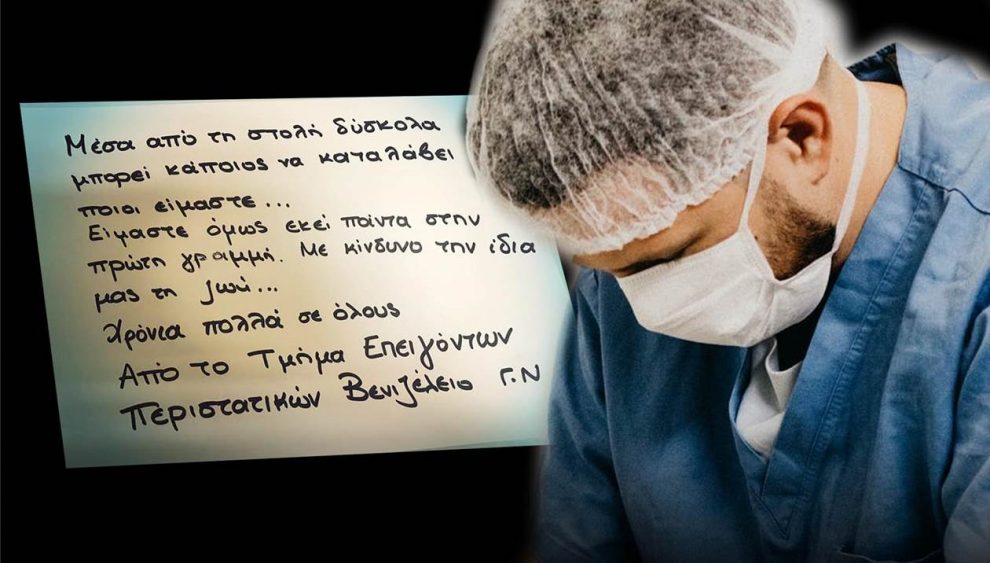 Μέσα από τη στολή δύσκολα
μπορεί κάποιος να καταλάβει
ποιοι είμαστε...
Είμαστε όμως εκεί πάντα στην
πρώτη γραμμή. Με κίνδυνο την ίδια
μας τη ζωή...
Χρόνια πολλά σε όλους
Από το Τμήμα Επειγόντων
Περιστατικών Βενιζέλειο Γ.Ν